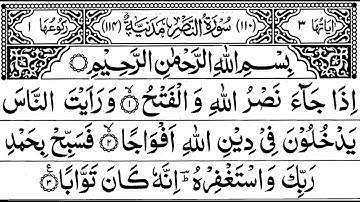 اٰيَاتُهَا ٣ (١١٠) سُوْرَةُ النَّصْرِ مَدَنِيَّةٌ (١١٤) رُكُوْعُهَا ١
بِسْمِ اللّٰهِ الرَّحْمٰنِ الرَّحِيْمِ
اِذَا جَآءَ نَصْرُ اللّٰهِ وَالْفَتْحُ ۙ﴿١﴾ وَرَاَيْتَ النَّاسَ
يَدْخُلُوْنَ فِيْ دِيْنِ اللّٰهِ اَفْوَاجًا ۙ﴿٢﴾ فَسَبِّحْ بِحَمْدِ
رَبِّكَ وَاسْتَغْفِرْهُ ؔؕ اِنَّهٗ كَانَ تَوَّابًا ﴿٣﴾